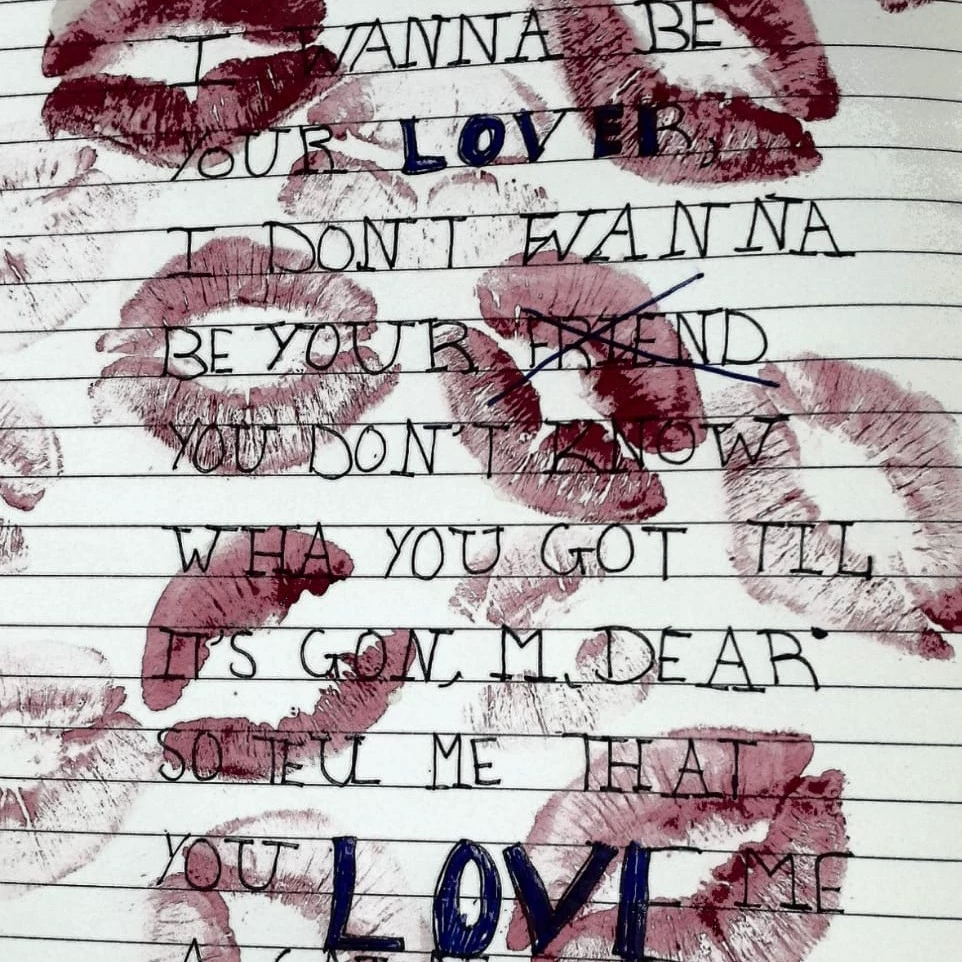 I WANNA BE
YOUR LOVER,
I DON'T WANNA
BE YOUR FRIEND
YOU DON'T KNOW
WHA YOU GOT TIL
IT'S GON, M. DEAR
SO TELL ME THAT
YOU LOVE ME